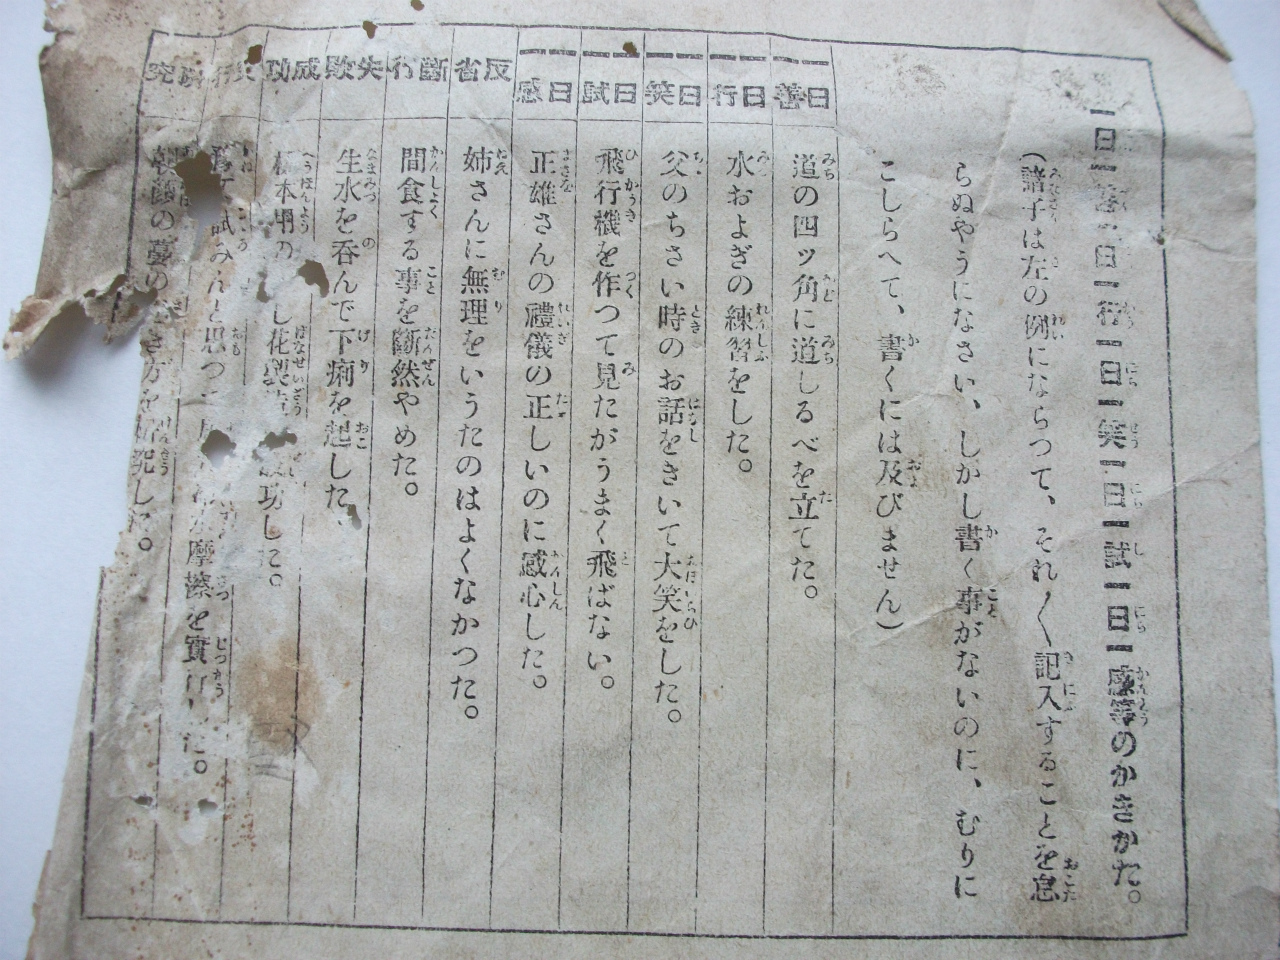 一日一善一日一行一日一笑一日一試一日一感等のかきかた。
(諸子は左の例にならつて、それ〱記入することを怠
らぬやうになさい、しかし書く事がないのに、むりに
こしらへて、書くには及びません)
一日一善 道の四ッ角に道しるべを立てた。
一日一行 水およぎの練習をした。
一日一笑 父のちさい時のお話をきいて大笑をした。
一日一試 飛行機を作つて見たがうまく飛ばない。
一日一感 正雄さんの禮儀の正しいのに感心した。
反省 姉さんに無理をいうたのはよくなかつた。
斷行 間食する事を斷然やめた。
失敗 生水を呑んで下痢を起した
成功 標本用の し花製造 成功した。
行 試みんと思つて 摩擦を實行した。
究 朝顔の蔓の き方を研究した。